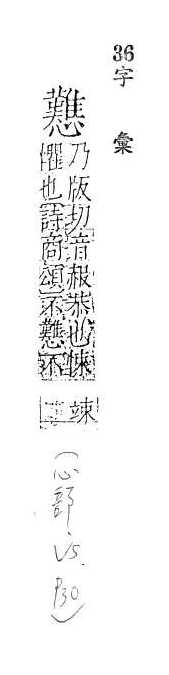 36字 彙
戁
乃版切音赧恭也悚
懼也詩商頌不戁不
竦
(心部 V5. P30)